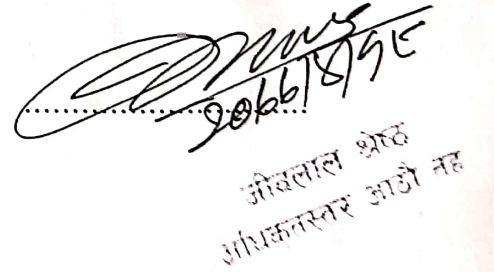 २०६६/४/१८
जीवलाल श्रेष्ठ
अधिकृतस्तर आठौ तह